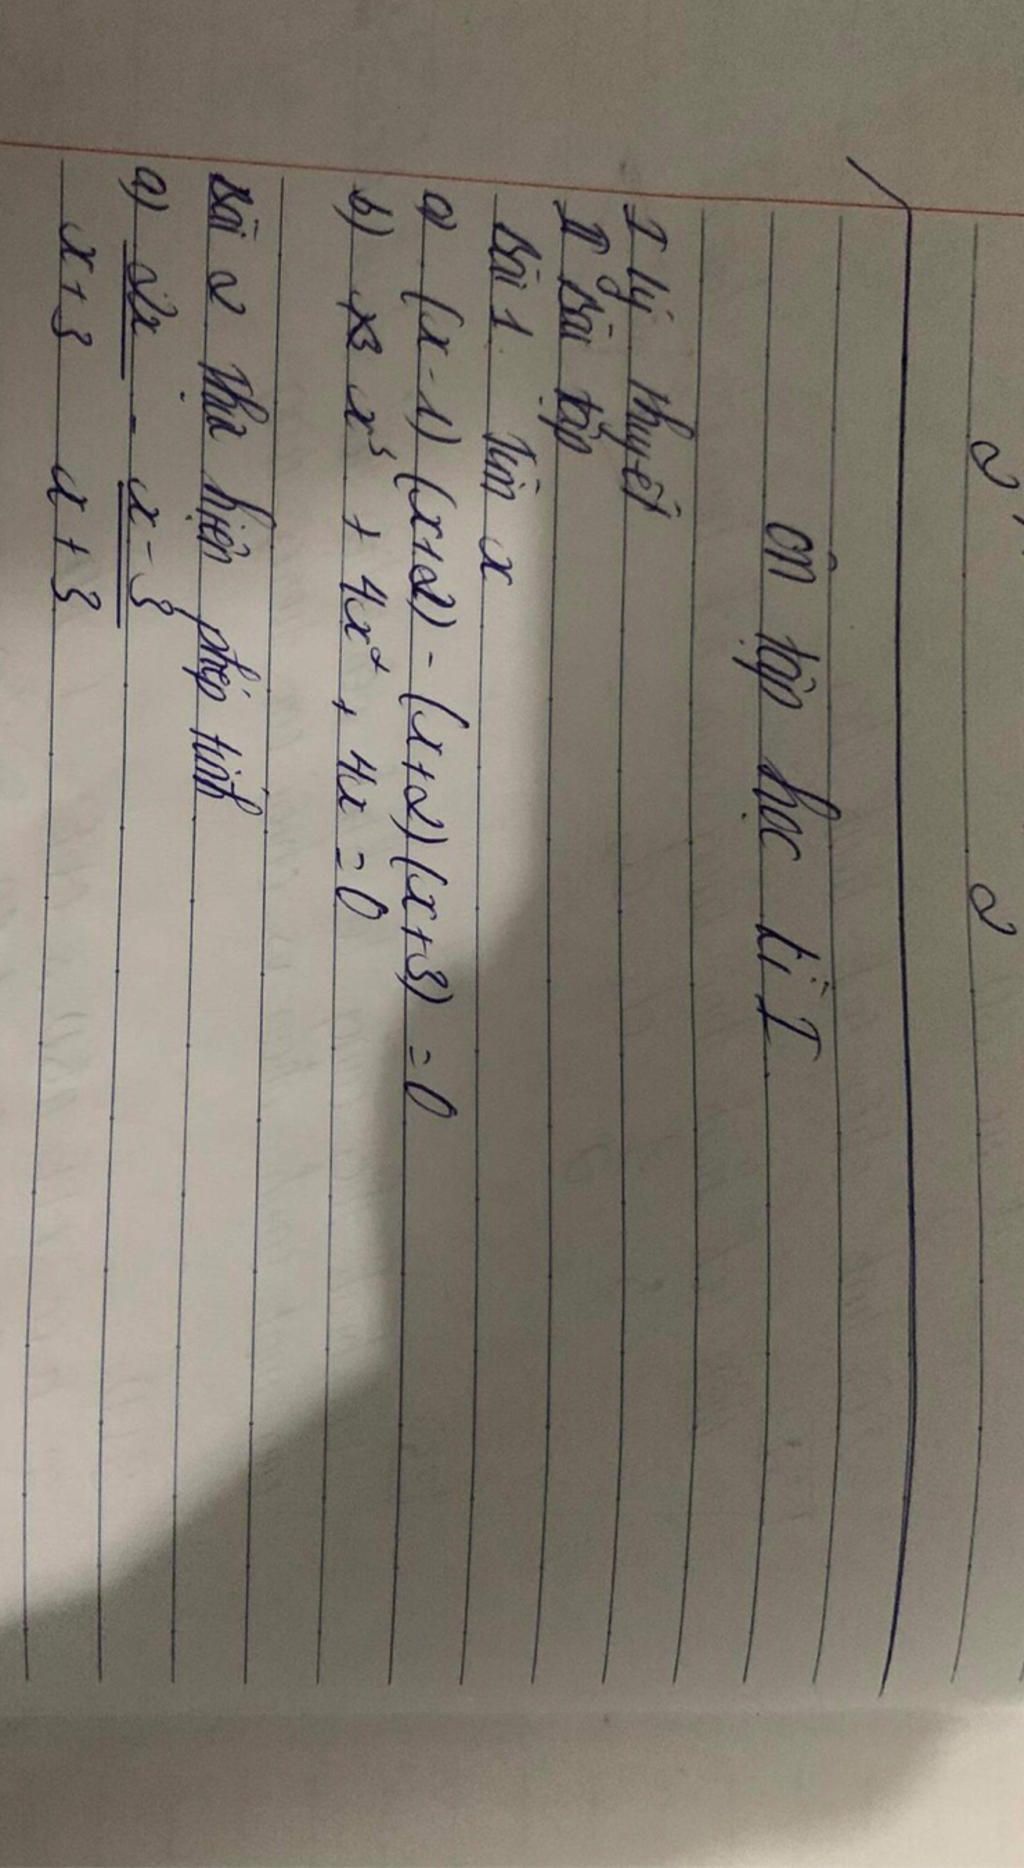 2 2
Ôn tập học kì I
I Lý thuyết
II Bài tập
Bài 1 Tìm x
a) (x-1)(x+2) - (x+2)(x+3) = 0
b) x³ + 4x² + 4x = 0
Bài 2 Thực hiện phép tính
a) 2x/x+3 - x-3/x+3